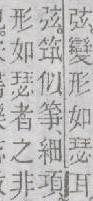 弦變形如瑟耳
弦筑似箏細項
形如瑟者之非